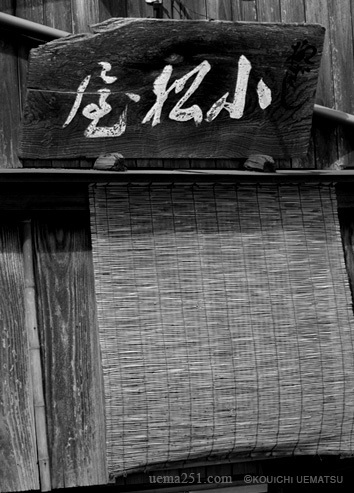 小松屋
uema251.com ©KOUICHI UEMATSU